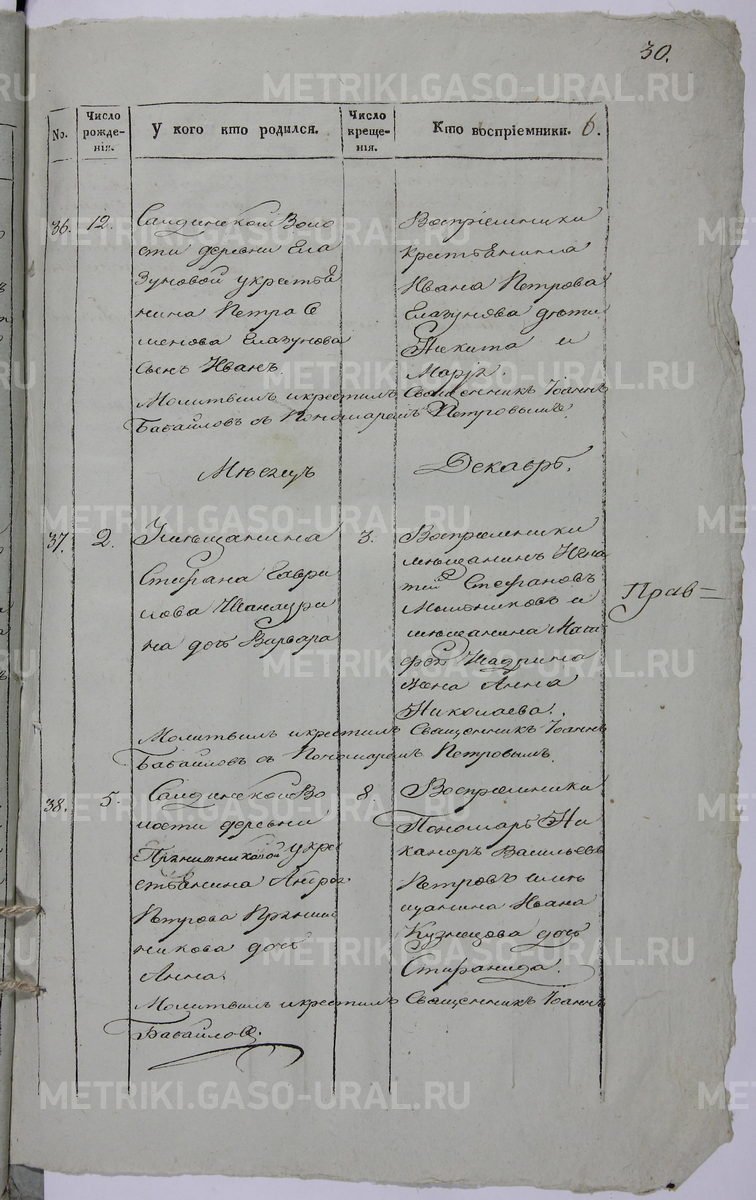 30.
No.
Число рожде-нія.
У кого кто родился.
Число креще-нія.
Кто воспріемники.
6.
36.
12.
Салдинской Воло
сти деревни Гла
зуновой у крестья
нина Петра Се
менова Глазунова
сынъ Иванъ.
Воспріемники
крестьянина
Ивана Петрова
Глазунова дѣти
Никита и
Марія.
Молитвилъ и крестилъ Священникъ Іоаннъ
Бабайловъ съ Пономаремъ Петровымъ.
Мѣсяцъ Декабрь.
37.
2.
У мѣщанина
Стефана Гаври
лова
на дочь Варвара
3.
Воспріемники
мѣщанинъ Игна
тій Стефановъ
Мельниковъ и
мѣщанина
Шадрина
жена Анна
Николаева.
Молитвилъ и крестилъ Священникъ Іоаннъ
Бабайловъ съ Пономаремъ Петровымъ.
Прав=
38.
5.
Салдинской Во
лости деревни
Прянишниковой у кре
стьянина Андрея
Петрова Прянишникова дочь
Анна.
8.
Воспріемники
Пономарь Ни
каноръ Васильевъ
Петровъ и мѣ
щанина Ивана
Кузнецова дочь
Стефанида.
Молитвилъ и крестилъ Священникъ Іоаннъ
Бабайловъ.
METRIKI.GASO-URAL.RU